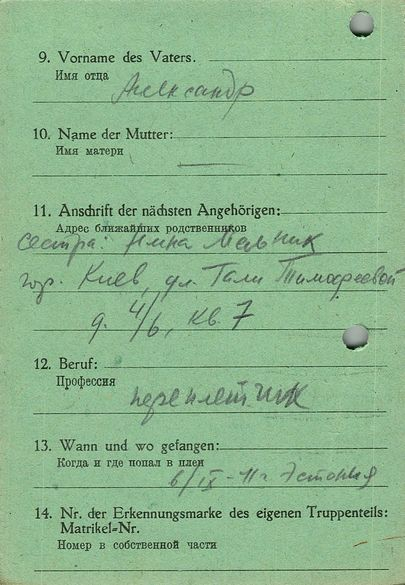 9. Vorname des Vaters.
Имя отца
Александр
10. Name der Mutter:
Имя матери
11. Anschrift der nächsten Angehörigen:
Адрес ближайших родственников
сестра: Анна Мельник
гор. Киев, ул. Гали Тимофеевой
д. 4/6, кв. 7
12. Beruf:
Профессия
переплетчик
13. Wann und wo gefangen:
Когда и где попал в плен
6/IX-41г Эстония
14. Nr. der Erkennungsmarke des eigenen Truppenteils:
Matrikel-Nr.
Номер в собственной части